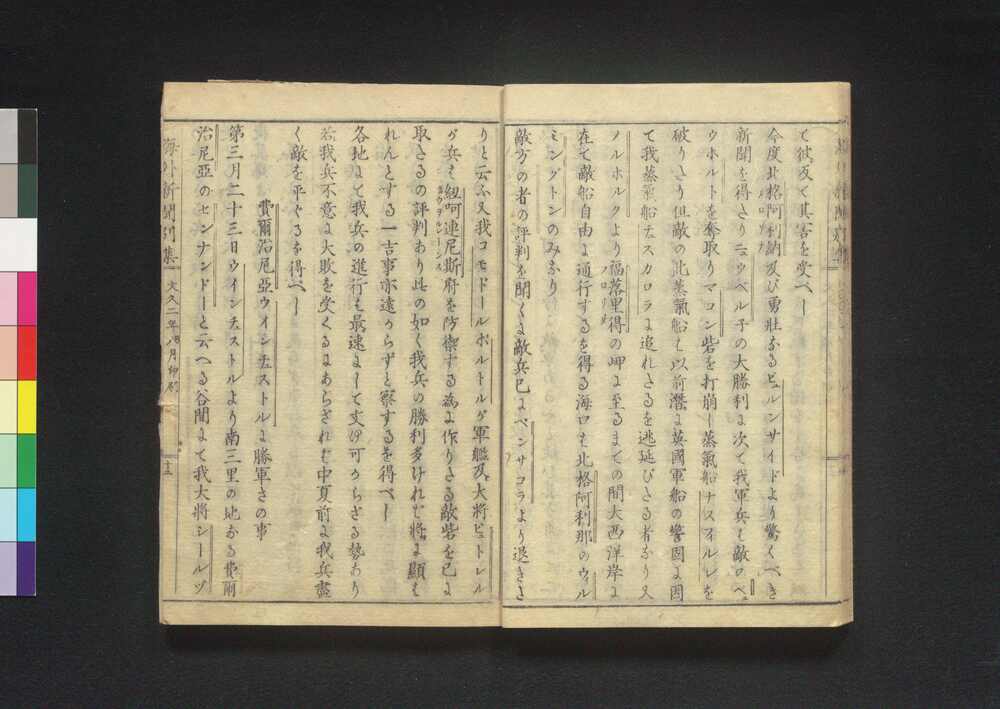 て彼反て其害を受べし
今度北格阿利納及び勇壮なるビュルンサイドより驚くべき
新聞を得たりニュウベル子の大勝利に次て我軍兵も敵のベ
ウホルトを奪取りマコン砦を打崩し蒸氣船ナスフィルレを
破りたり但敵の此蒸氣船も以前潜に英國軍船の警固に因
て我蒸氣船チュスカロラに追れたるを逃延びたる者なり又
ノルホルクより福落里得の岬に至るまでの間大西洋岸に
在て敵船自由に通行するを得る海口も北格阿利那のウィル
ミングトンのみなり
敵方の者の評判を聞くに敵兵已にペンサコラより退きた
りと云ふ又我コモドールポルトルが軍艦及大将ビュトレル
が兵も紐呵連尼斯府を防禦する為に作りたる敵砦を已に
取たるの評判あり此の如く我兵の勝利多ければ將に顯も
れんとする一吉事亦遠からずと察するを得べし
各地にて我兵の進行も最速にして支ゆ可からざる勢あり
若我兵不意に大敗を受くるにあらざれば中夏前に我兵盡
く敵を平ぐるを得べし
費爾治尼亞ウインチェストルに勝軍さの事
第三月二十三日ウインチェストルより南三里の地なる費爾
治尼亞のセンナンドーと云へる谷間にて我大將シールヅ
海外新聞別集
文久二年
八月印行
十三